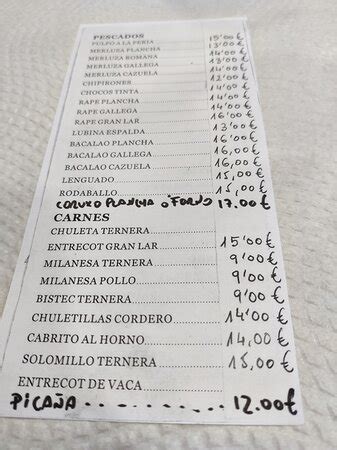 PESCADOS
PULPO A LA FERIA 15'00 €
MERLUZA PLANCHA 13'00 €
MERLUZA ROMANA 14'00 €
MERLUZA GALLEGA 13'00 €
MERLUZA CAZUELA 14'00 €
CHIPIRONES 12'00 €
CHOCOS TINTA 14'00 €
RAPE PLANCHA 14'00 €
RAPE GALLEGA 14'00 €
RAPE GRAN LAR 16'00 €
LUBINA ESPALDA 13'00 €
BACALAO PLANCHA 16'00 €
BACALAO GALLEGA 16,00 €
BACALAO CAZUELA 16,00 €
LENGUADO 15,00 €
RODABALLO 15,00 €
PLANCHA o FORNO 17.00 €
CARNES
CHULETA TERNERA
ENTRECOT GRAN LAR 15'00 €
MILANESA TERNERA 9'00 €
MILANESA POLLO 9'00 €
BISTEC TERNERA 9'00 €
CHULETILLAS CORDERO 14'00 €
CABRITO AL HORNO 14,00 €
SOLOMILLO TERNERA 15,00 €
ENTRECOT DE VACA
PICAÑA 12.00€